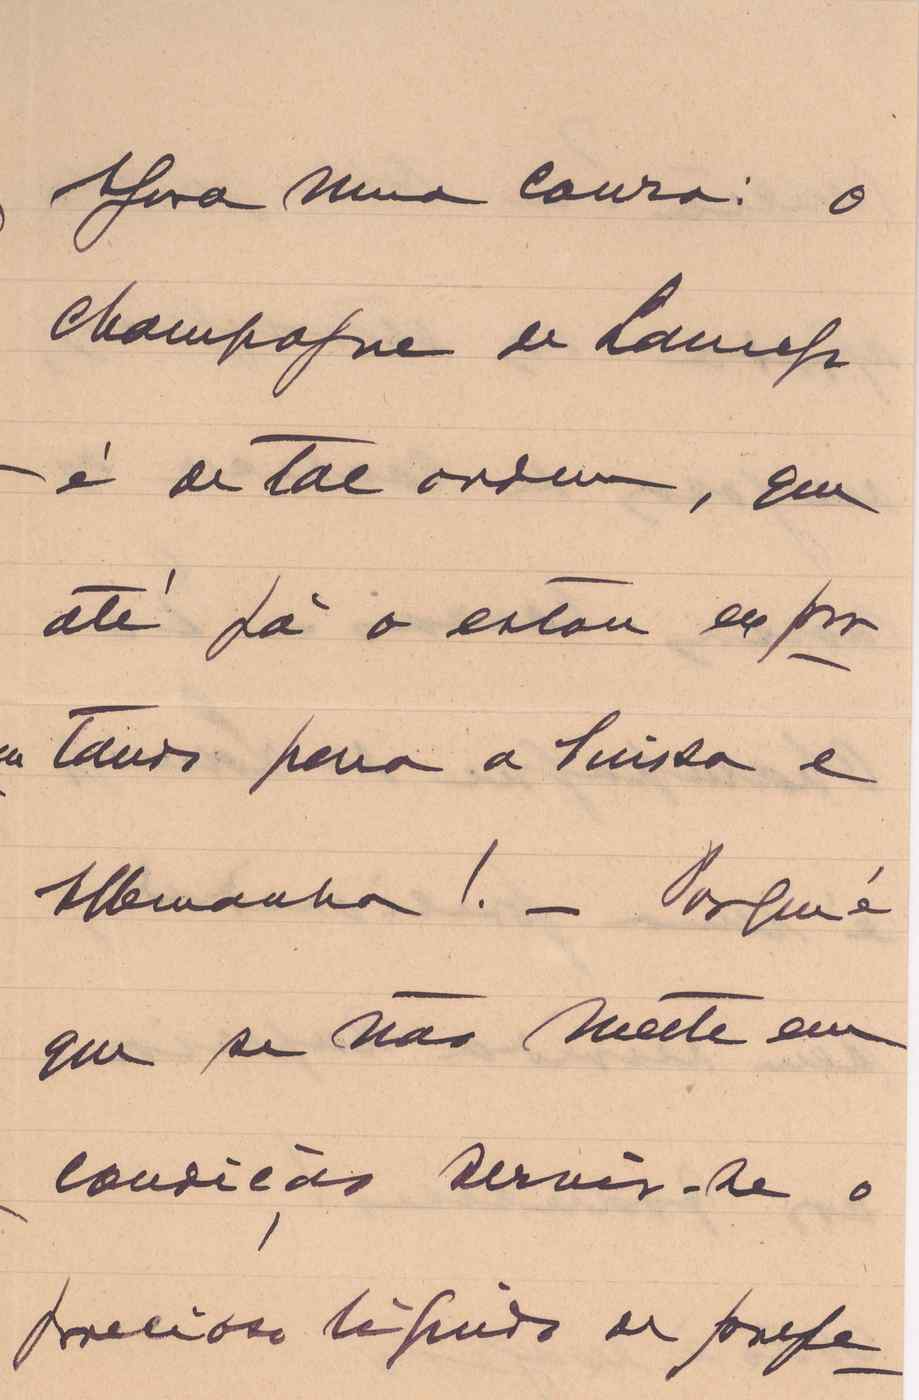 Agora numa cousa: o
champagne de Lamego
é de tal ordem, que
até já o estou expor
tando para a Suissa e
Allemanha! — Porque é
que se não mette em
condição servir-se o
precioso liquido de prefe